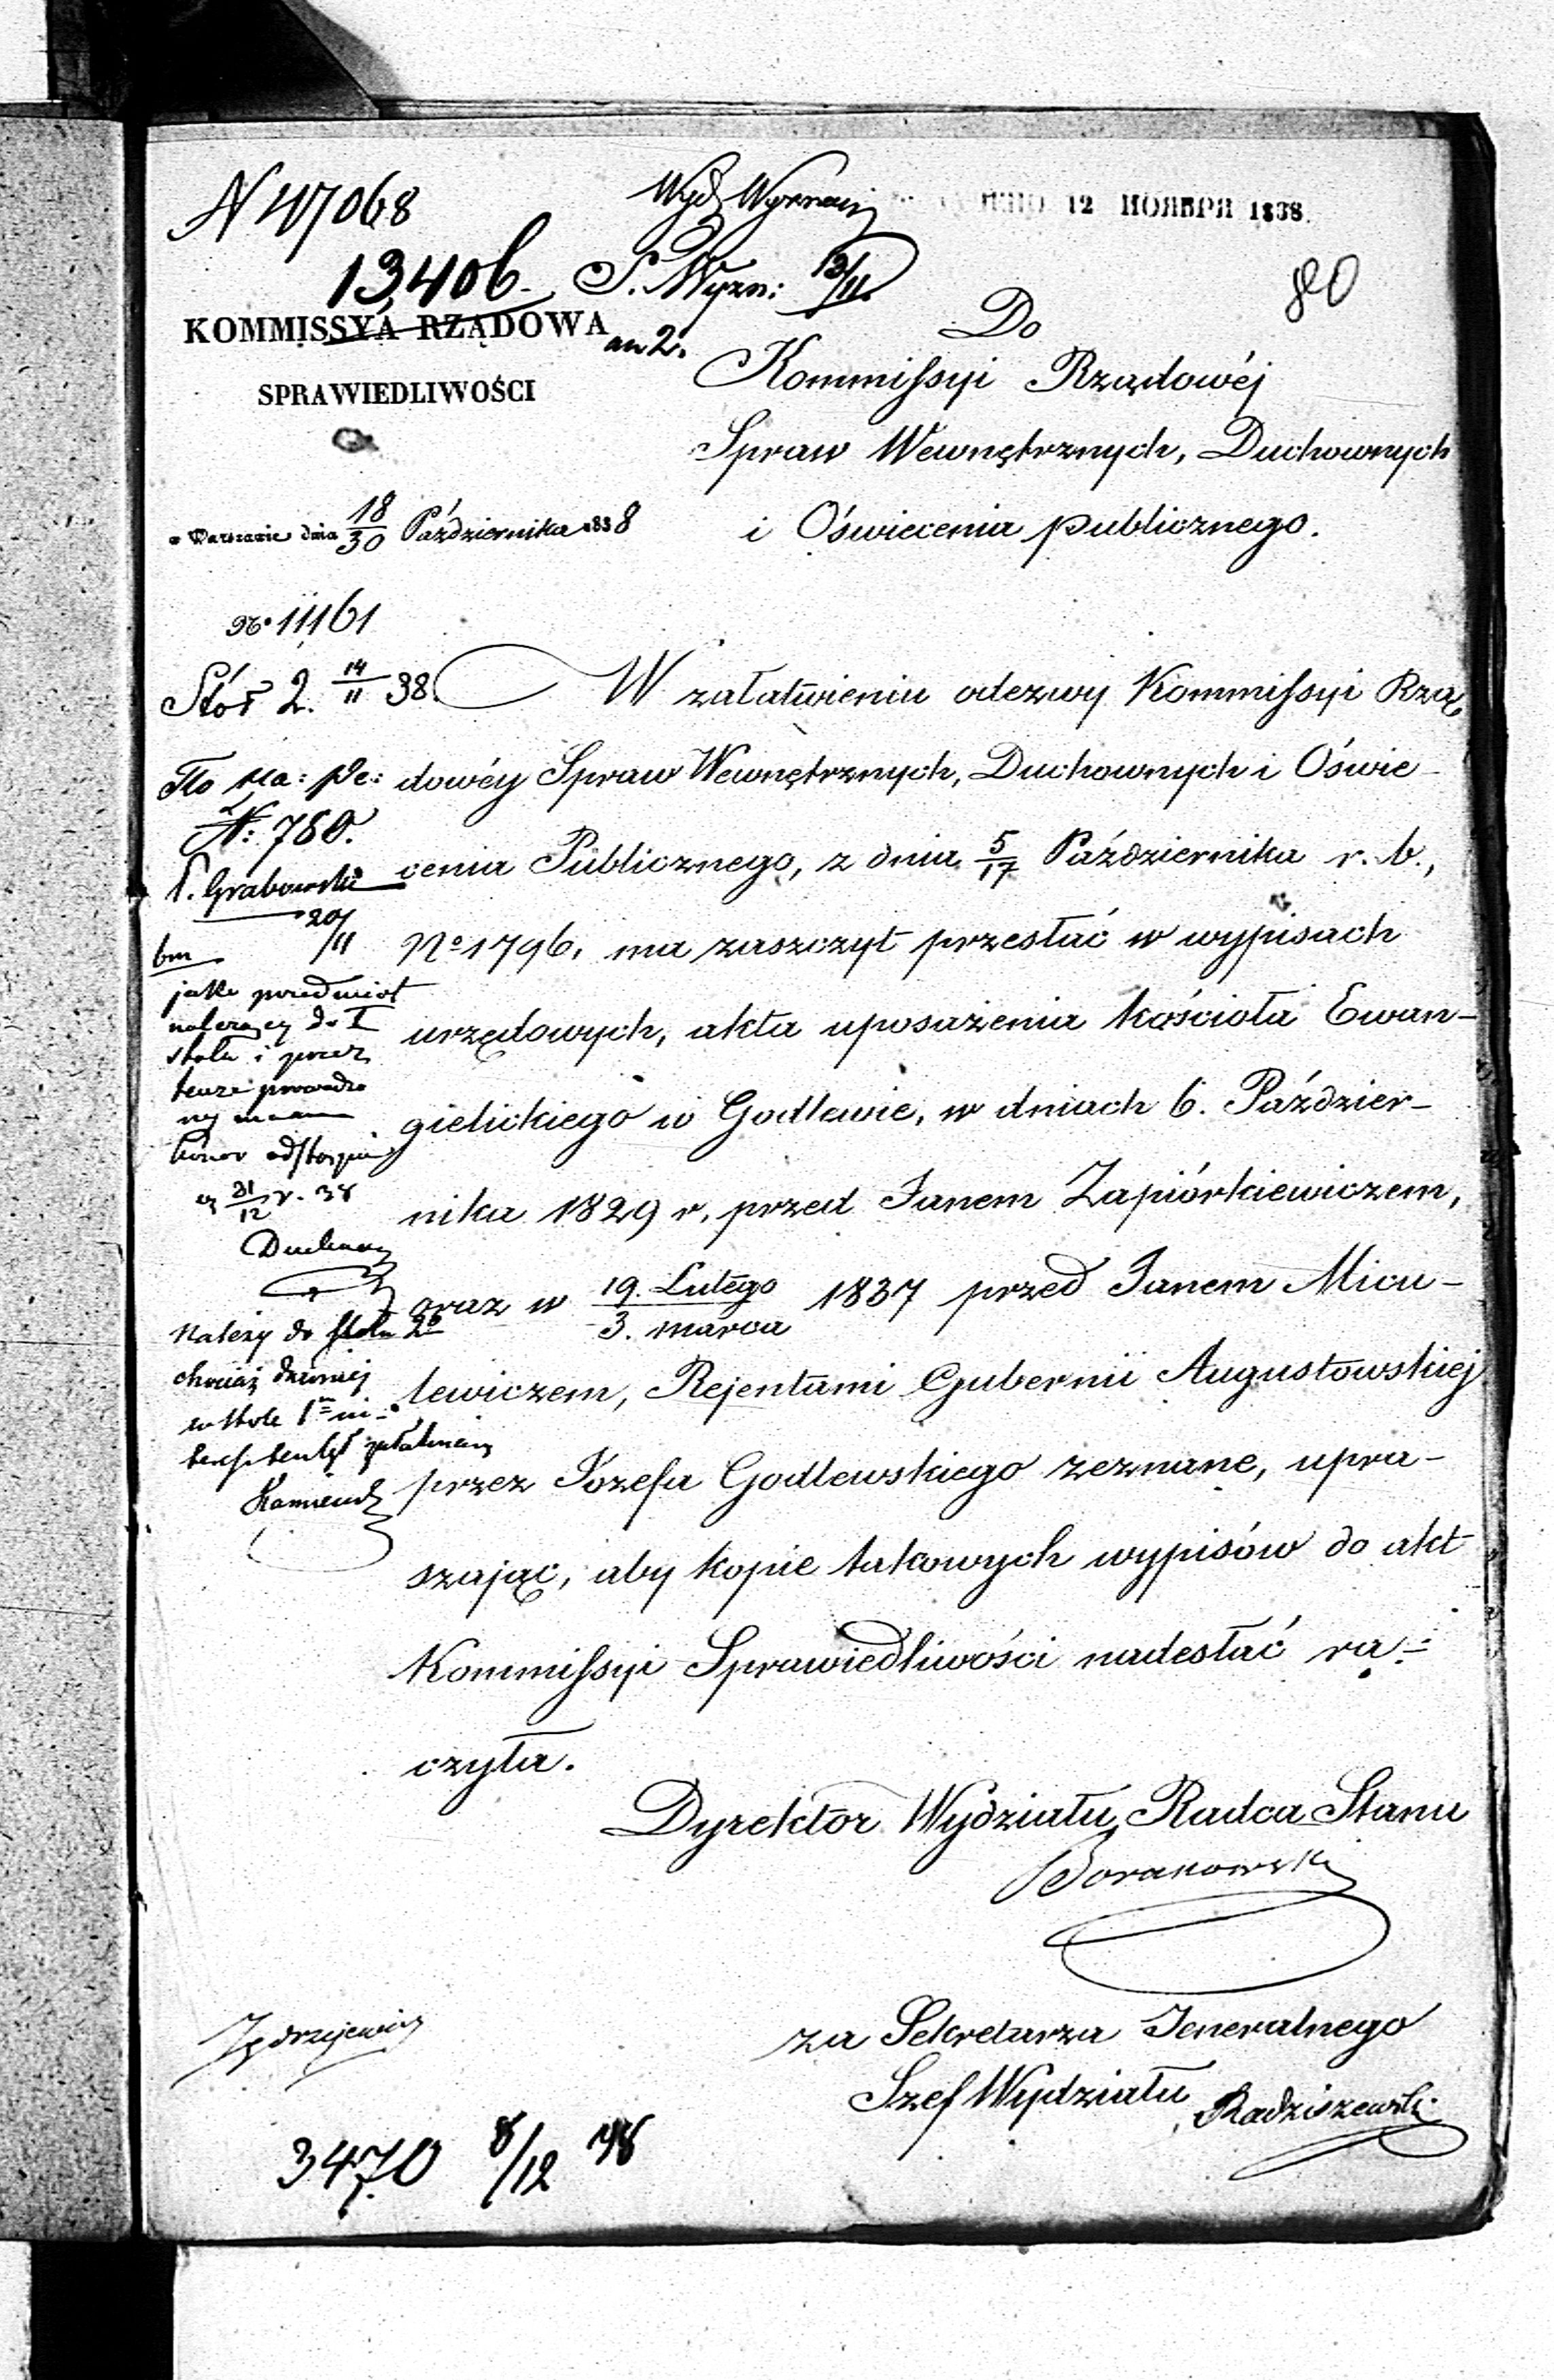 N 47068
Wyd. Wyznań
12 НОЯБРЯ 1838.
13,406. S. Wyzn: 13/11.
80
KOMMISSYA RZĄDOWA
an 2.
SPRAWIEDLIWOŚCI
Do
Kommissyi Rządowéj
Spraw Wewnętrznych, Duchownych
i Oświecenia publicznego.
w Warszawie dnia 18/30 Października 1838
No 11161
Stół 2. 14/11 38.
W załatwieniu odezwy Kommissyi Rzą
dowéy Spraw Wewnętrznych, Duchownych i Oświe-
cenia Publicznego, z dnia 5/17 Października r. b.,
No 1796, ma zaszczyt przesłać w wypisach
urzędowych, akta uposażenia kościoła Ewan-
gielickiego w Godlewie, w dniach 6. Paździer-
nika 1829 r. przed Janem Zapiórkiewiczem,
oraz w 19. Lutego/3. marca 1837 przed Janem Micu-
lewiczem, Rejentami Gubernii Augustowskiej
przez Józefa Godlewskiego zeznane, upra-
szając, aby kopie takowych wypisów do akt
Kommissyi Sprawiedliwości nadesłać ra-
czyła.
N: 780.
P. Grabowski
20/11
bm
jako przedmiot
należący do I
stołu i przez
tenże prowadzo
ny mam
honor odstąpić
31/12 r. 38
Należy do stołu 2o
chociaż dawniej
w stole 1m
Dyrektor Wydziału, Radca Stanu
za Sekretarza Jeneralnego
Szef Wydziału Radziszewski
Jędrzejewicz
3470 8/12 38